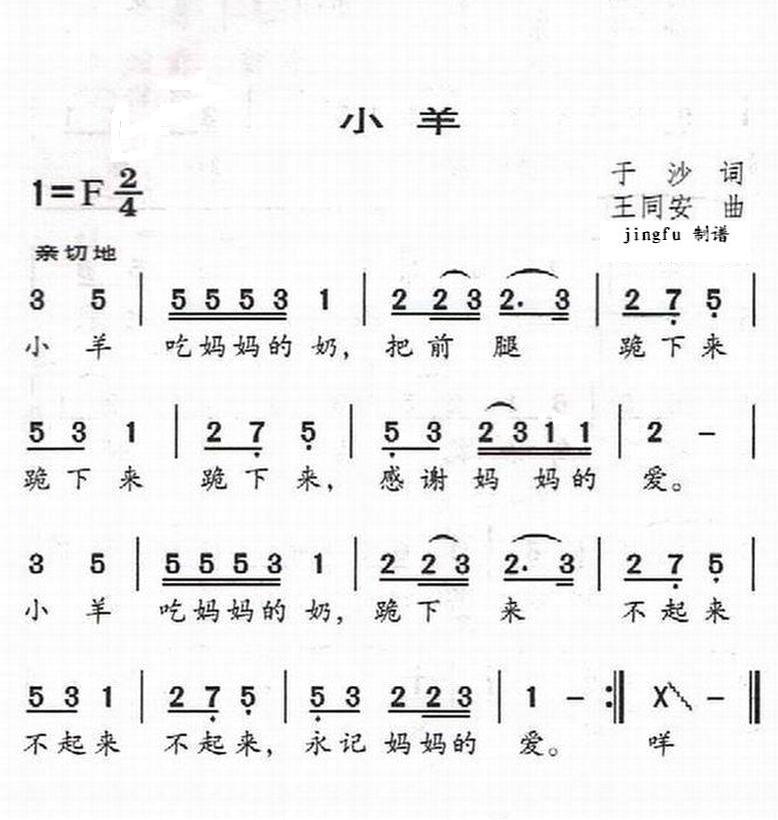 小羊
1=F 2/4
于沙 词
王同安 曲
jingfu 制谱
亲切地
3 5 | 5 5 5 3 1 | 2 2 3 2. 3 | 2 7 5 |
小 羊 吃妈妈的 奶, 把前 腿 跪下来
5 3 1 | 2 7 5 | 5 3 2 3 1 1 | 2 - |
跪下来 跪下来, 感谢妈 妈的 爱。
3 5 | 5 5 5 3 1 | 2 2 3 2. 3 | 2 7 5 |
小 羊 吃妈妈的 奶, 跪下 来 不起来
5 3 1 | 2 7 5 | 5 3 2 2 3 | 1 - :| X - |
不起来 不起来, 永记 妈妈的 爱。 咩